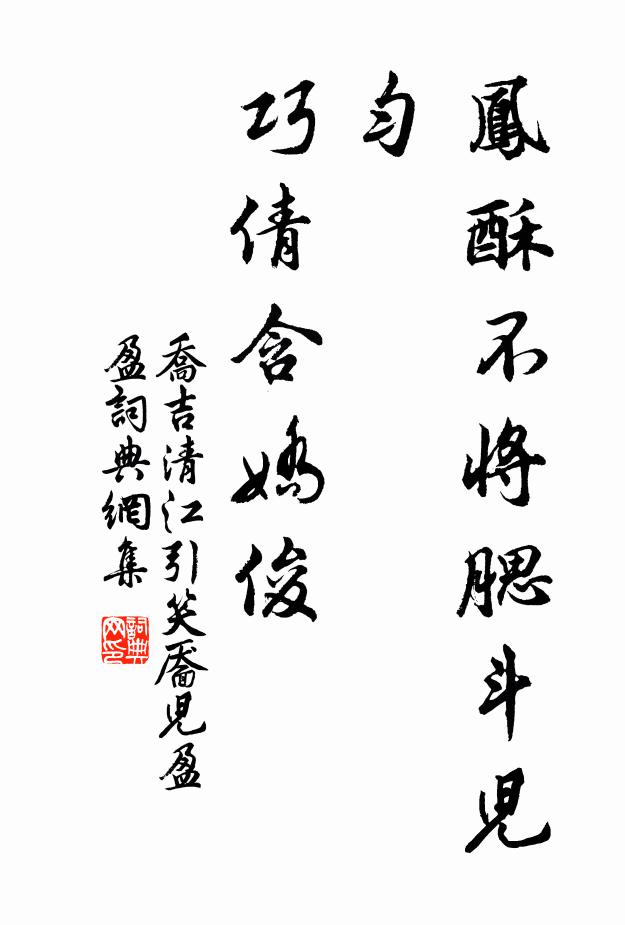 鳳酥不將腮斗兒
勻
巧倩含嬌俊
喬吉清江引笑靨兒盈
盈詞典網集
詞典
网印